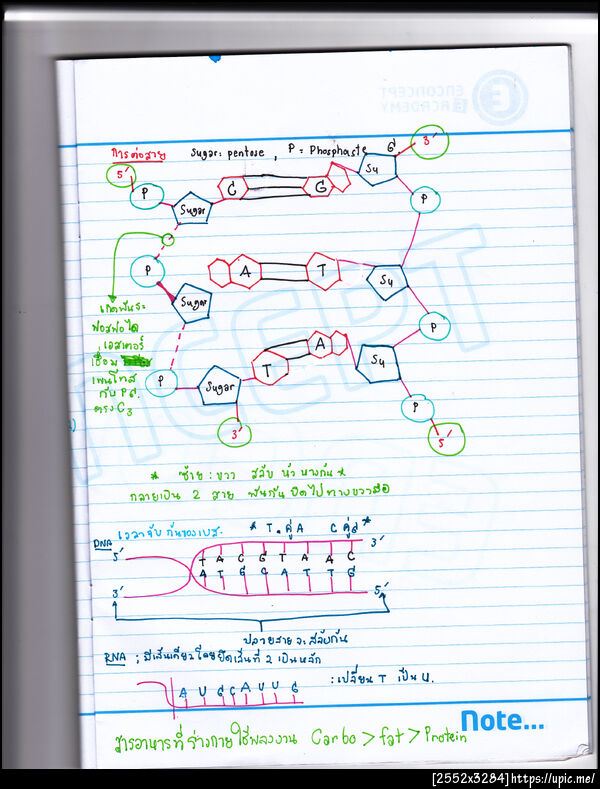 ENCONCEPT
E ACADEMY
การต่อสาย Sugar: pentose, P = Phosphaste
6' 3'
5' P Sugar C G Su
P
P Sugar A T Su
P
P Sugar T A Su
P
3' 5'
เกิดพันธะ
ฟอสฟอได
เอสเตอร์
เชื่อม
เพนโทส
กับ
ตรง C3
* ซ้าย : ขวา สลับ หัว หางกัน *
กลายเป็น 2 สาย พันกัน บิดไปทางขวามือ
DNA เวลาจับกันของเบส * T คู่ A C คู่ G *
5' 3'
T A C G T A A C
A T G C A T T G
3' 5'
ปลายสายจะสลับกัน
RNA ; มีเส้นเดียวโดยยึดเส้นที่ 2 เป็นหลัก
A U G C A U U G : เปลี่ยน T เป็น U.
Note...
สารอาหารที่ร่างกายใช้พลงงาน Carbo > fat > Protein
[2552x3284] https://upic.me/